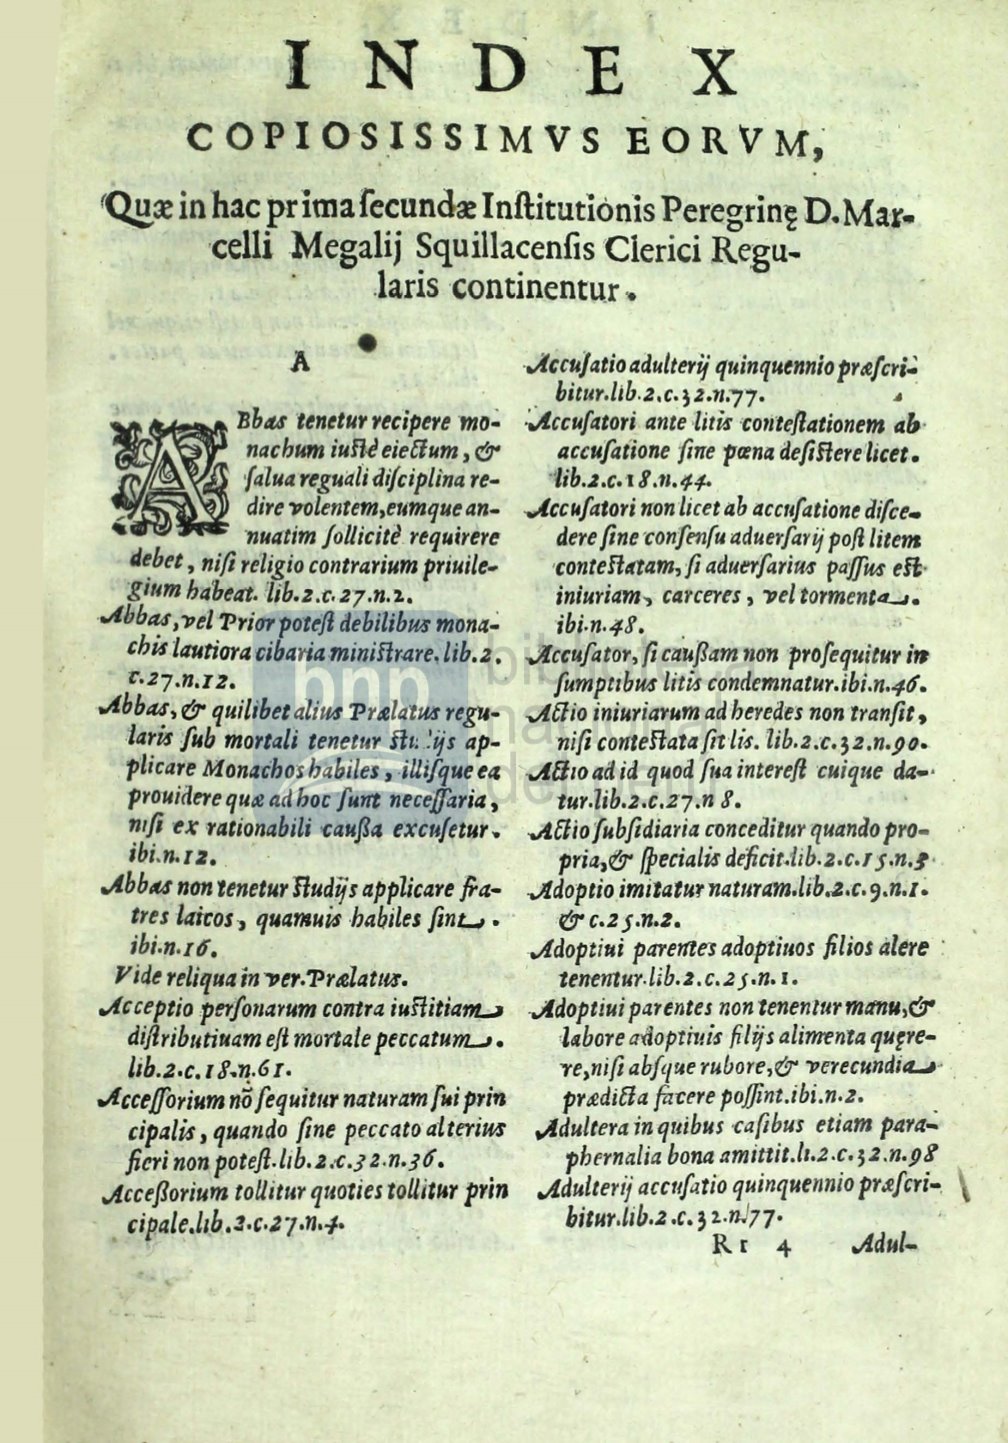 INDEX
COPIOSISSIMVS EORVM,
Quæ in hac prima ſecundæ Inſtitutionis Peregrinę D. Mar-
celli Megalij Squillacenſis Clerici Regu-
laris continentur.
A
ABbas tenetur recipere mo-
nachum iuſtè eiectum, &
ſalua reguali diſciplina re-
dire volentem, eumque an-
nuatim ſollicitè requirere
debet, niſi religio contrarium priuile-
gium habeat. lib.2.c.27.n.2.
Abbas, vel Prior poteſt debilibus mona-
chis lautiora cibaria miniſtrare. lib.2.
c.27.n.12.
Abbas, & quilibet alius Prælatus regu-
laris ſub mortali tenetur ſtudijs ap-
plicare Monachos habiles, illiſque ea
prouidere quæ ad hoc ſunt neceſſaria,
niſi ex rationabili cauſſa excuſetur.
ibi.n.12.
Abbas non tenetur ſtudijs applicare fra-
tres laicos, quamuis habiles ſint.
ibi.n.16.
Vide reliqua in ver. Prælatus.
Acceptio perſonarum contra iuſtitiam
diſtributiuam eſt mortale peccatum.
lib.2.c.18.n.61.
Acceſſorium nõ ſequitur naturam ſui prin
cipalis, quando ſine peccato alterius
fieri non poteſt. lib.2.c.32.n.36.
Acceſſorium tollitur quoties tollitur prin
cipale. lib.2.c.27.n.4.
Accuſatio adulterij quinquennio præſcri-
bitur. lib.2.c.32.n.77.
Accuſatori ante litis conteſtationem ab
accuſatione ſine pœna deſiſtere licet.
lib.2.c.18.n.44.
Accuſatori non licet ab accuſatione diſce-
dere ſine conſenſu aduerſarij poſt litem
conteſtatam, ſi aduerſarius paſſus eſt
iniuriam, carceres, vel tormenta.
ibi.n.48.
Accuſator, ſi cauſſam non proſequitur in
ſumptibus litis condemnatur. ibi.n.46.
Actio iniuriarum ad heredes non tranſit,
niſi conteſtata ſit lis. lib.2.c.32.n.90.
Actio ad id quod ſua intereſt cuique da-
tur. lib.2.c.27.n 8.
Actio ſubſidiaria conceditur quando pro-
pria, & ſpecialis deficit. lib.2.c.15.n.3
Adoptio imitatur naturam. lib.2.c.9.n.1.
& c.25.n.2.
Adoptiui parentes adoptiuos filios alere
tenentur. lib.2.c.25.n.1.
Adoptiui parentes non tenentur manu, &
labore adoptiuis filijs alimenta quęre-
re, niſi abſque rubore, & verecundia
prædicta facere poſſint. ibi.n.2.
Adultera in quibus caſibus etiam para-
phernalia bona amittit. li.2.c.32.n.98
Adulterij accuſatio quinquennio præſcri-
bitur. lib.2.c.32.n.77.
Rr 4 Adul-
bnp